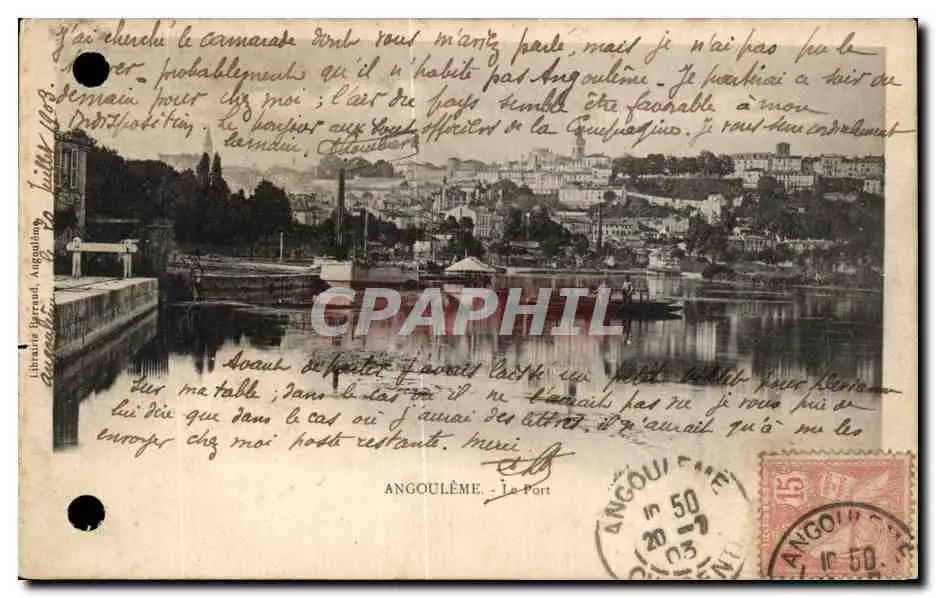 J'ai cherché le camarade dont vous m'aviez parlé, mais je n'ai pas pu le
trouver. probablement qu'il n'habite pas Angoulême. Je partirai ce soir ou
demain pour chez moi ; l'air du pays semble être favorable à mon
indisposition. Le bonjour aux sous officiers de la Compagnie. Je vous serre cordialement
la main,
Angoulême le 20 Juillet 1903
Librairie Barraud, Angoulême
CPAPHIL
Avant de partir j'avais laissé un petit pour
sur ma table ; dans le cas où il ne l'aurait pas vu je vous prie de
lui dire que dans le cas où j'aurai des lettres, il n'aurait qu'à me les
envoyer chez moi poste restante. Merci
ANGOULÊME. - Le Port
ANGOULEME
50
20 -7
03
15
ANGOULEME
50